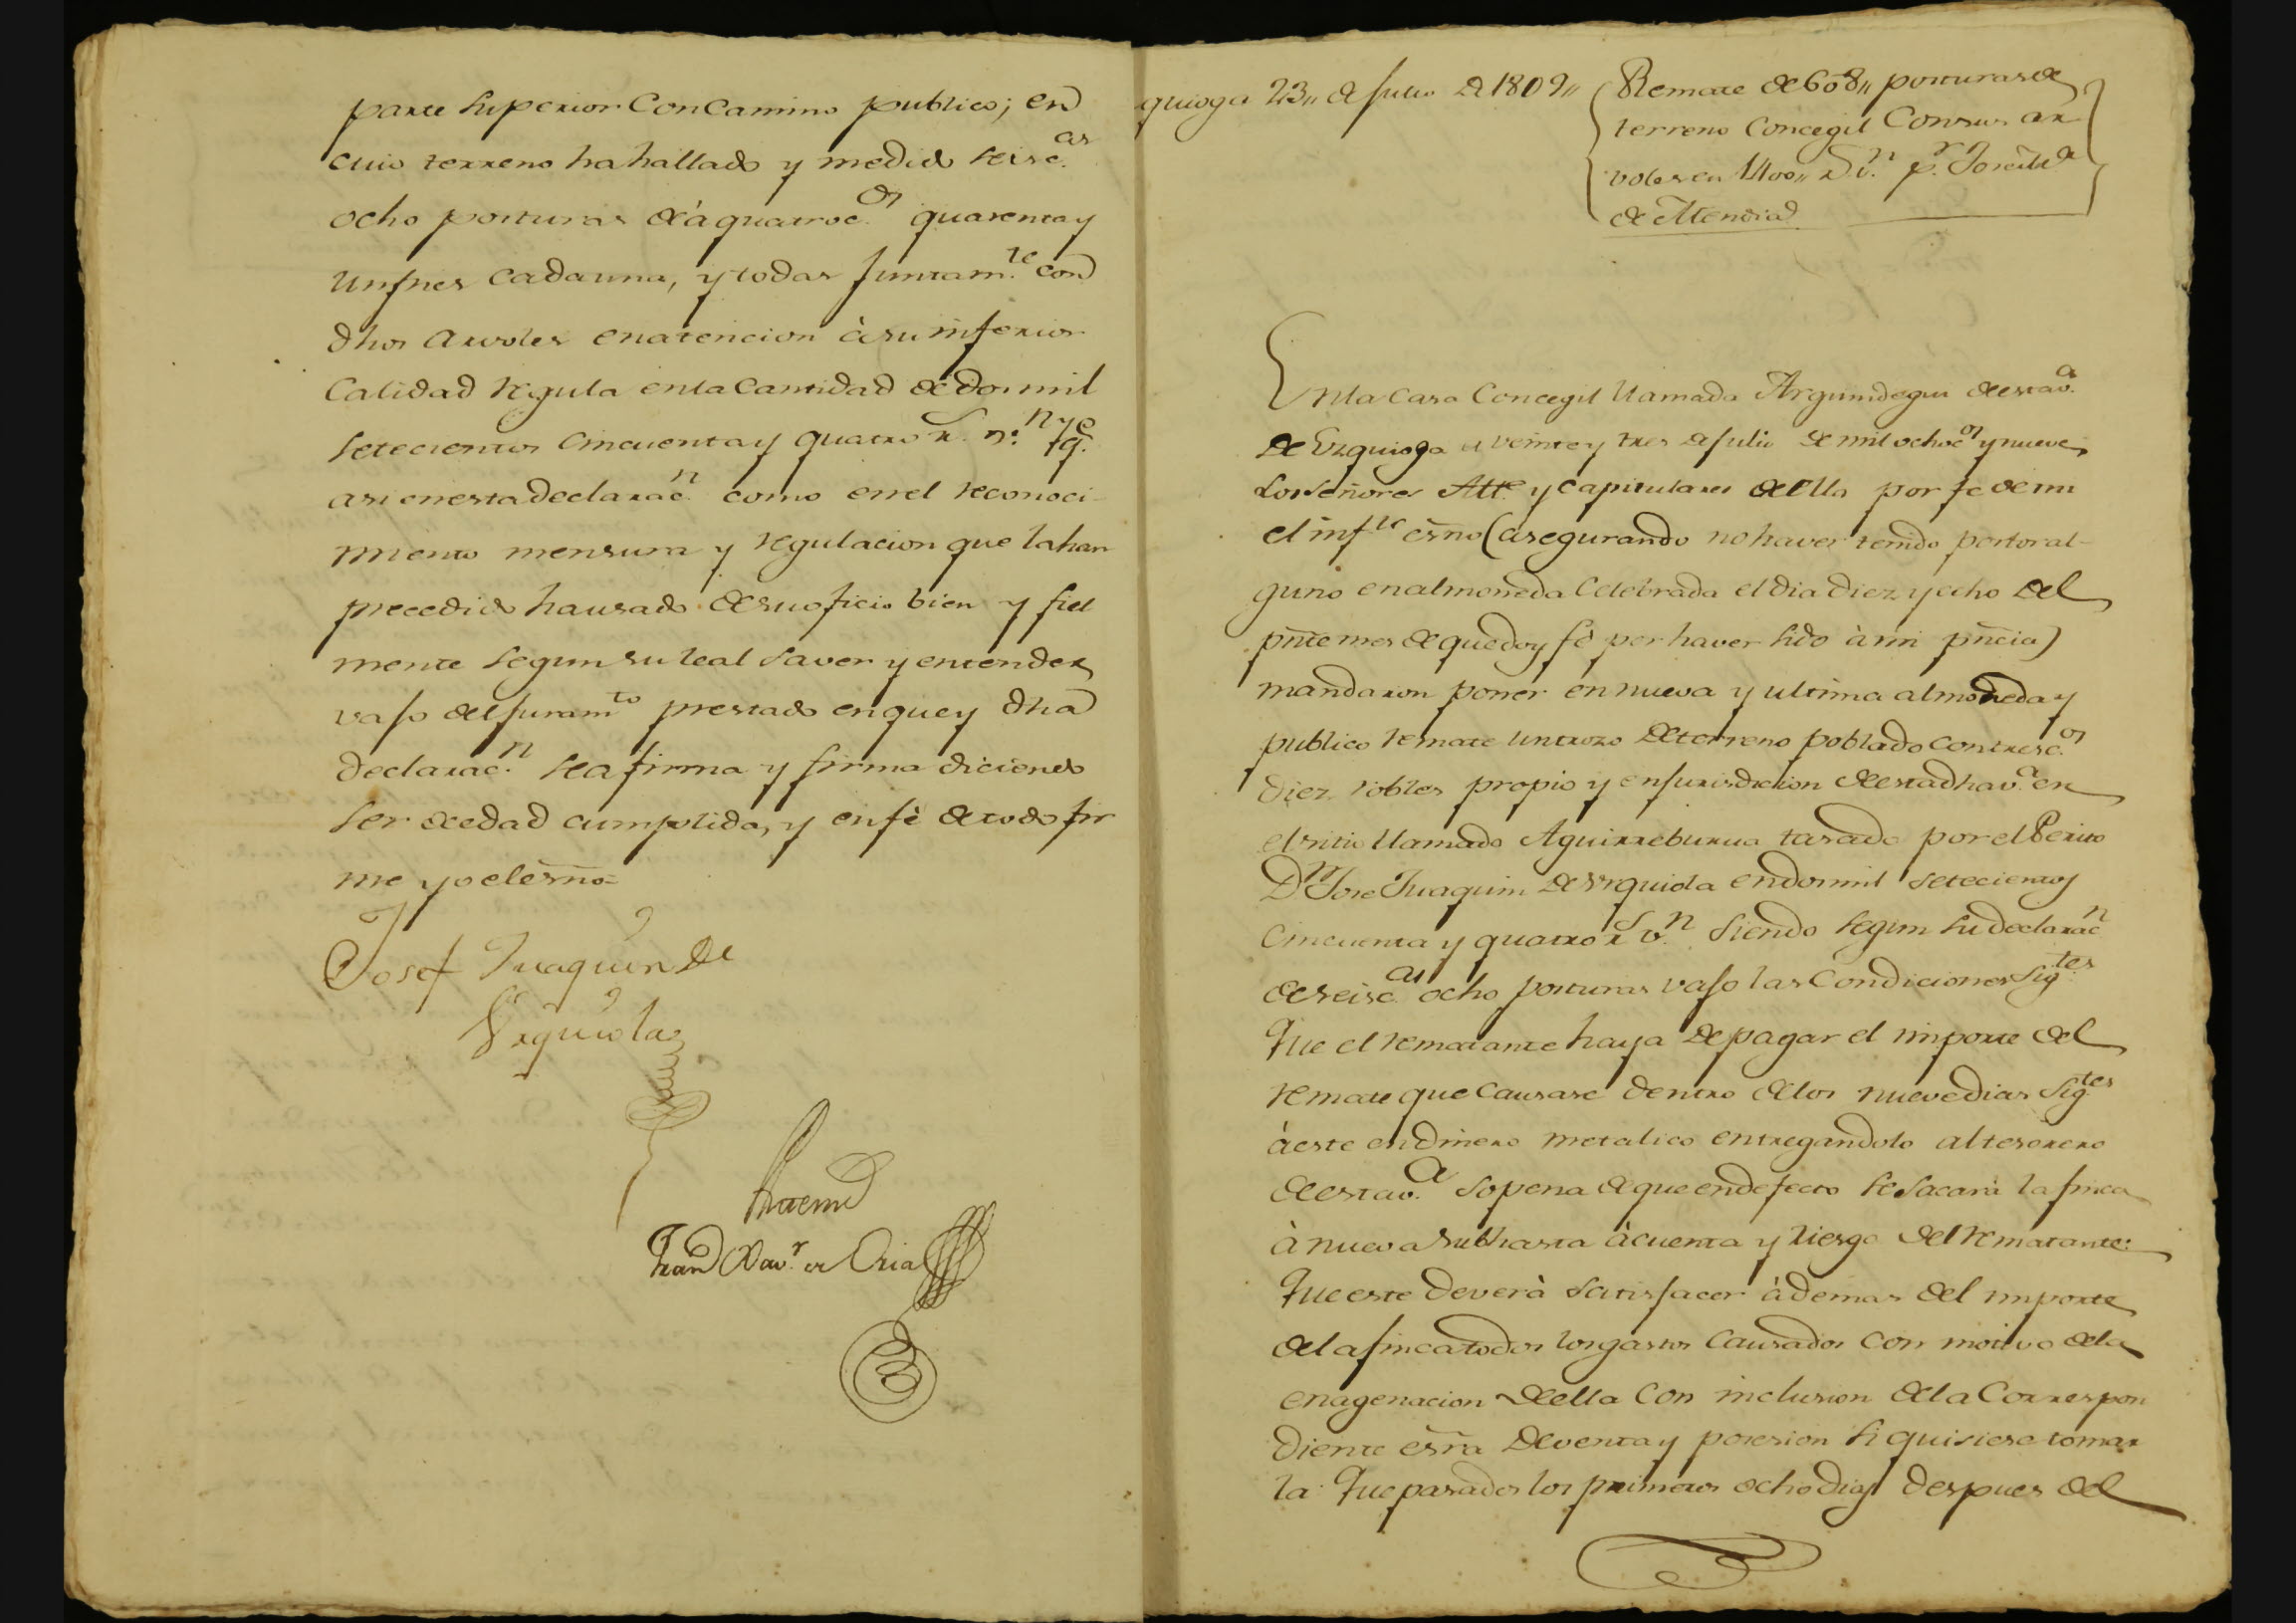 parte superior con camino publico; en
cuio terreno ha hallado y medido seisc.as
ocho posturas de à quatroc.os quarenta y
un pies cada una, y todas juntam.te con
dhos arvoles en atencion à su inferior
calidad regula en la cantidad de dos mil
setecientos cincuenta y quatro r.s v.n y q.e
asi en esta declarac.n como en el reconoci-
miento mensura y regulacion que la han
precedido ha usado de su oficio bien y fiel
mente segun su leal saver y entender
vajo del juram.to prestado en que y dha
declarac.n se afirma y firma diciendo
ser de edad cumplida, y en fè de todo fir
me yo el esrño=
Josef Juaquin de
Urquiola
Antemi
Fran.co Xav.r de Oria
quioga 23,, de Julio de 1809,,
Remate de 608,, posturas de
terreno Concegil con sus ar
voles en 1400,, r.s v.n p.r
de Mendia
En la Casa Concegil llamada Arguindegui de esta v.a
de Ezquioga a veinte y tres de Julio de mil ochoc.os y nueve
los señores Alc.e y capitulares de ella por fe de mi
el inf.to esrño (asegurando no haver tenido postor al-
guno en almoneda celebrada el dia diez y ocho del
pñte mes de que doy fè por haver sido à mi pñcia)
mandaron poner en nueva y ultima almoneda y
publico remate un trozo de terreno poblado con tresc.os
diez robles propio y en jurisdiccion de esta dha v.a en
el sitio llamado Aguirreburua tasado por el Perito
D.n Jose Juaquin de Urquiola en dos mil setecientos
cincuenta y quatro r.s v.n siendo segun su declarac.n
de seisc.as ocho posturas vajo las condiciones sig.tes
Que el rematante haya de pagar el importe del
remate que causare dentro de los nueve dias sig.tes
à este en dinero metalico entregandolo al tesorero
de esta v.a so pena de que en defecto se sacarà la finca
à nueva subhasta à cuenta y riesgo del rematante:
Que este deverà satisfacer àdemas del importe
de la finca todos los gastos causados con motivo de la
enagenacion de ella con inclusion de la correspon
diente esrña de venta y posesion si quisiere tomar
la: Que pasados los primeros ocho dias despues del